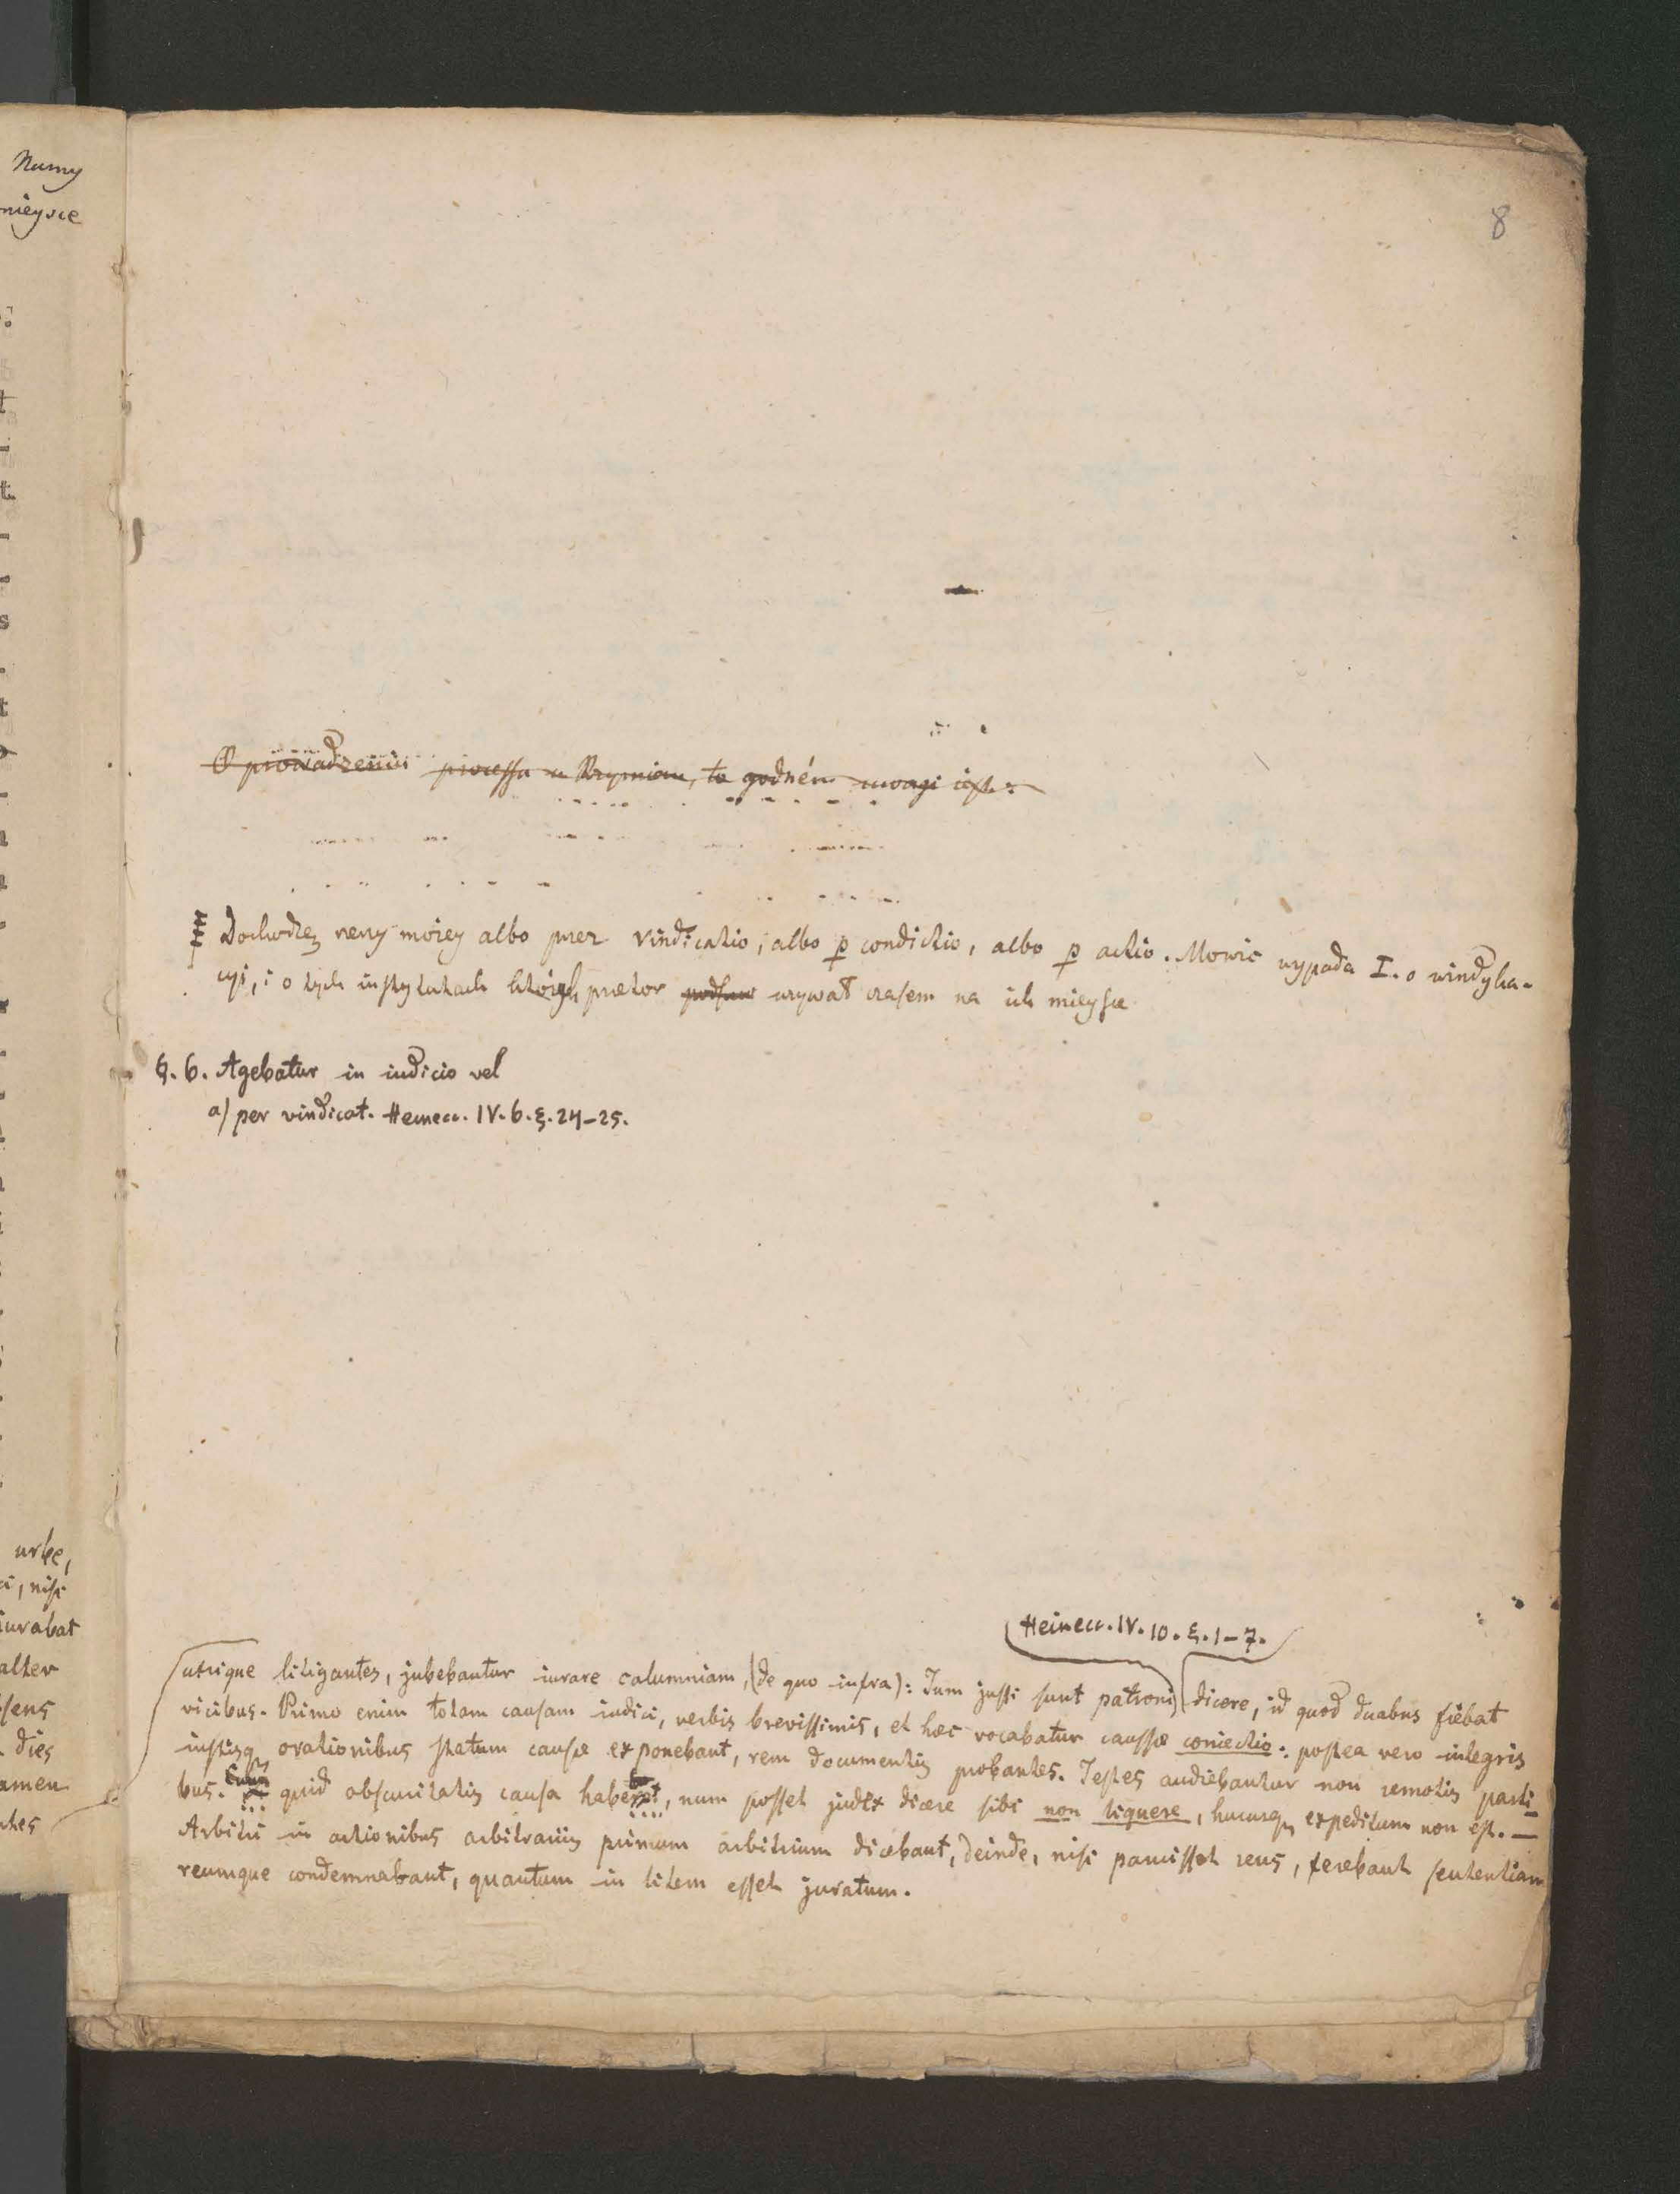 Numy
mieysce
8
O prowadzeniu processu u Rzymian, to godném uwagi iest:
Dochodzę rzeczy moiey albo przez vindicatio, albo p condictio, albo p actio. Mowić wypada I. o windyka-
cyi, i o tych instytutach których praetor używał czasem na ich mieysce
§. 6. Agebatur in iudicio vel
a) per vindicat. Heinecc. IV. 6. §. 24-25.
urbe,
i, nisi
iurabat
alter
sens
dies
amen
ntes
Heinecc. IV. 10. §. 1-7.
utrique litigantes, jubebantur iurare calumniam, (de quo infra): Tum jussi sunt patroni dicere, id quod duabus fiebat
vicibus. Primo enim totam causam iudici, verbis brevissimis, et haec vocabatur caussae coniectio: postea vero integris
iustisq orationibus statum causae exponebant, rem documentis probantes. Testes audiebantur non remotis parti-
bus. quid obscuritatis causa, num posset judex dicere sibi non liquere, hucusq expeditum non est. —
Arbitri in actionibus arbitrariis primum arbitrium dicebant, deinde, nisi paruisset reus, ferebant sententiam
reumque condemnabant, quantum in litem esset juratum.